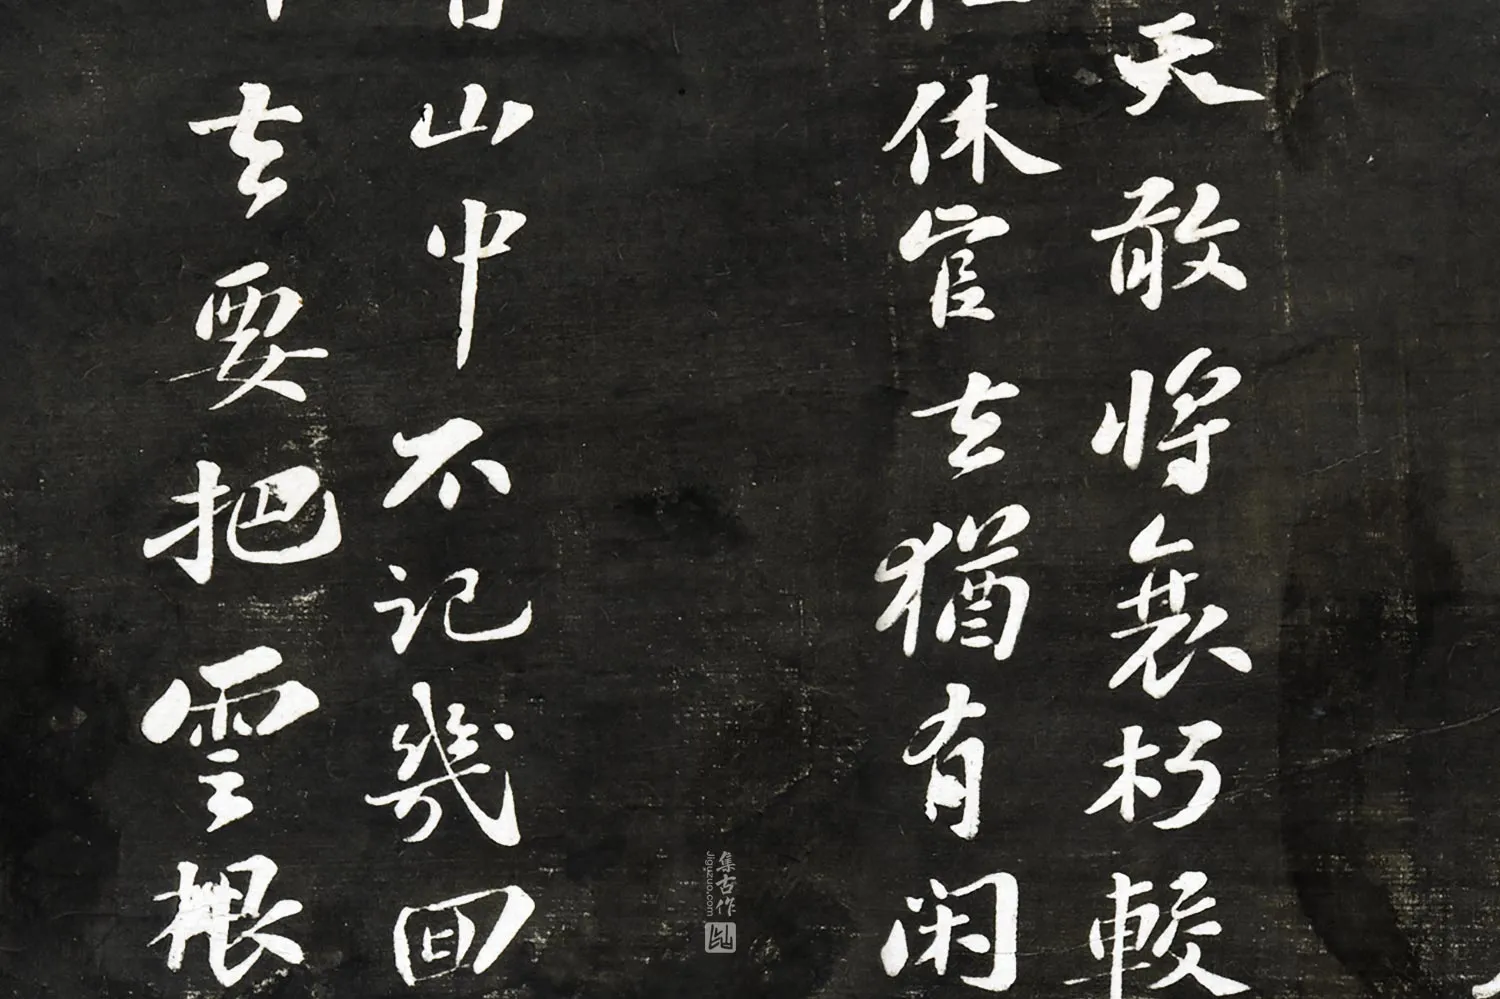 天敢將衰朽較
休官去猶有閑
山中不記幾回
去要把雲根
集古作
jiguzuo.com